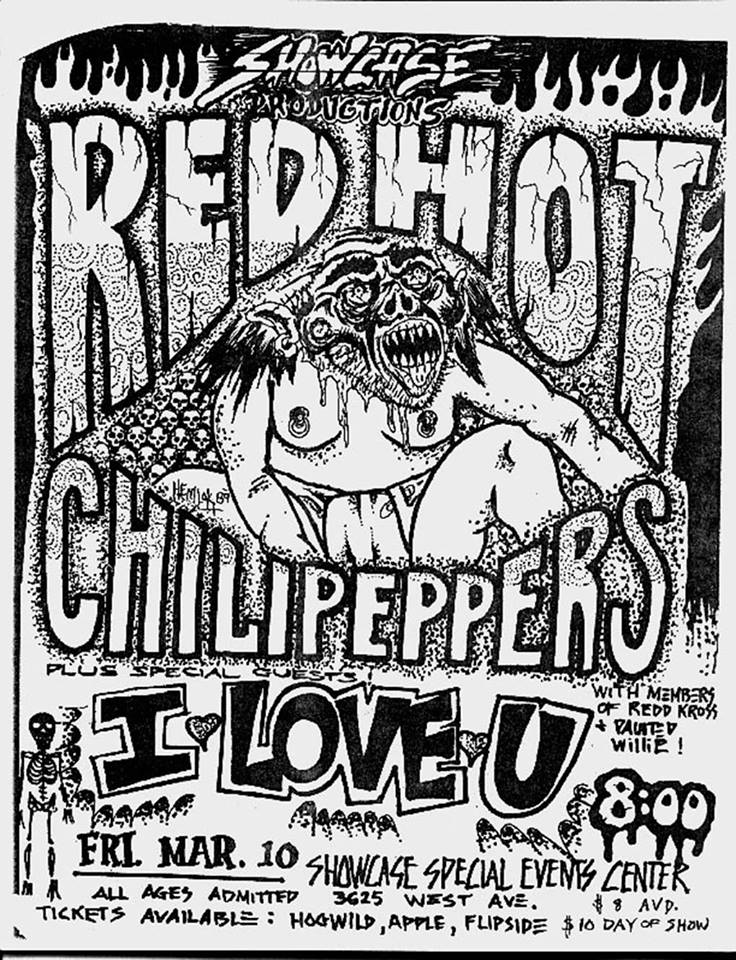 SHOWCASE
PRODUCTIONS
RED HOT
CHILI PEPPERS
HEMLOK 89
PLUS SPECIAL GUESTS!
I LOVE U
WITH MEMBERS
OF REDD KROSS
+ PAINTED
WILLIE!
8:00
FRI. MAR. 10
SHOWCASE SPECIAL EVENTS CENTER
ALL AGES ADMITTED
3625 WEST AVE.
$8 AVD.
TICKETS AVAILABLE: HOGWILD, APPLE, FLIPSIDE
$10 DAY OF SHOW